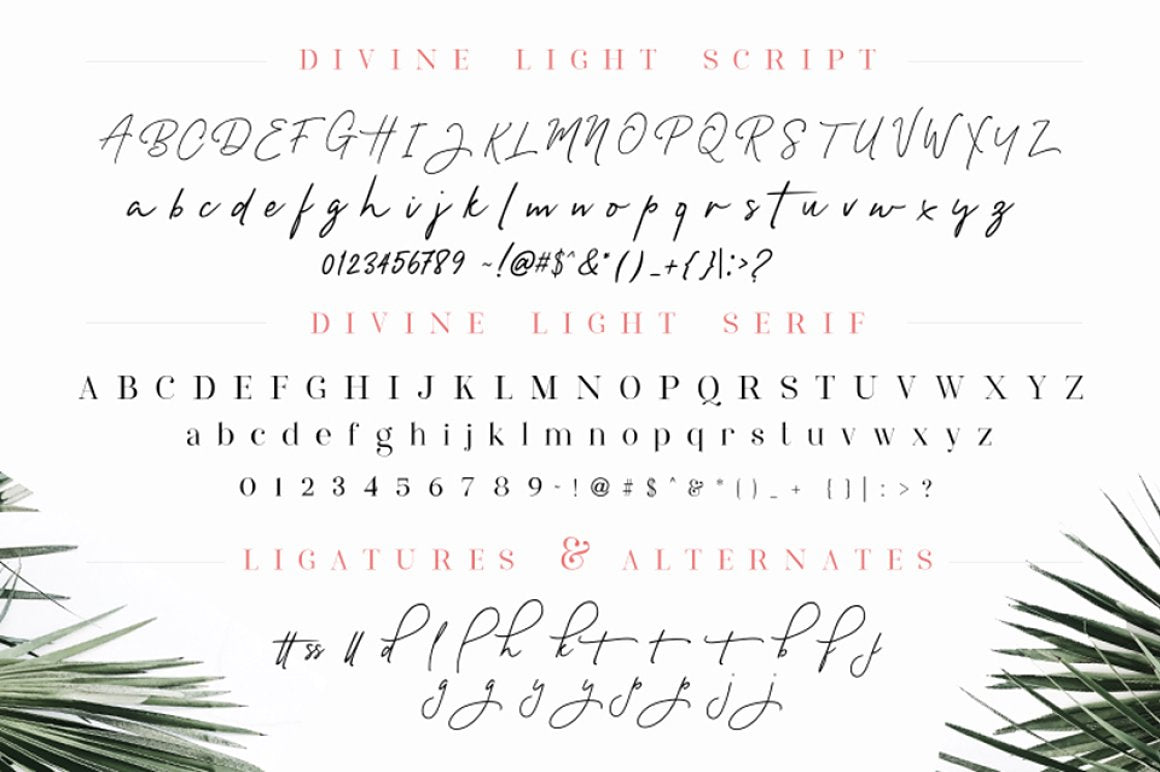 DIVINE LIGHT SCRIPT
A B C D E F G H I J K L M N O P Q R S T U V W X Y Z
a b c d e f g h i j k l m n o p q r s t u v w x y z
0123456789 ~!@#$^&*()_+{}|:>?
DIVINE LIGHT SERIF
A B C D E F G H I J K L M N O P Q R S T U V W X Y Z
a b c d e f g h i j k l m n o p q r s t u v w x y z
0 1 2 3 4 5 6 7 8 9 ~ ! @ # $ ^ & * ( ) _ + { } | : > ?
LIGATURES & ALTERNATES
tt ss ll d l l h k t t t b f j
g g y y p p j j